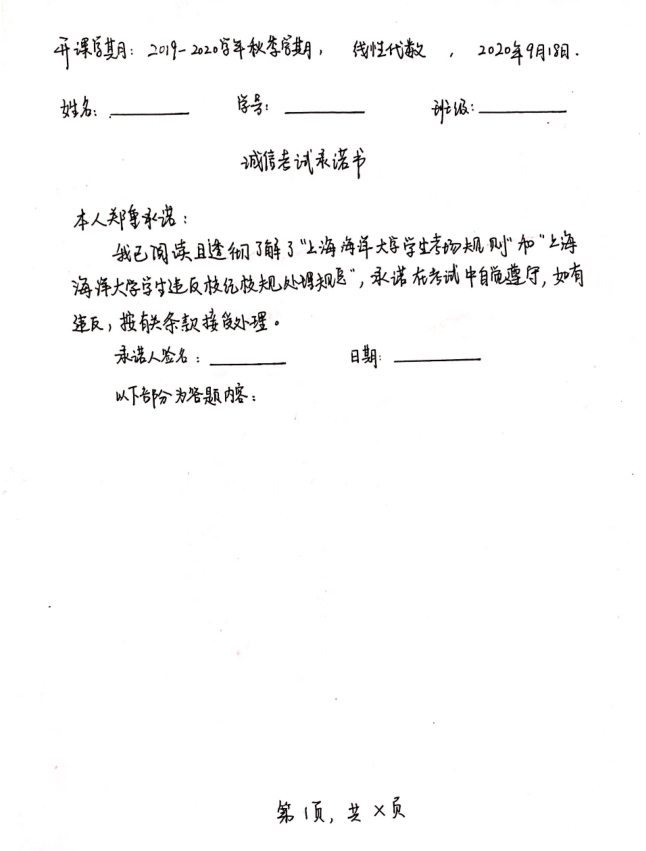 开课学期: 2019-2020学年秋季学期, 线性代数, 2020年9月18日.
姓名: ________ 学号: ________ 班级: ________
诚信考试承诺书
本人郑重承诺:
我已阅读且透彻了解了"上海海洋大学学生考场规则"和"上海
海洋大学学生违反校纪校规处理规定", 承诺在考试中自觉遵守, 如有
违反, 按有关条款接受处理。
承诺人签名: ________ 日期: ________
以下部分为答题内容:
第1页, 共×页